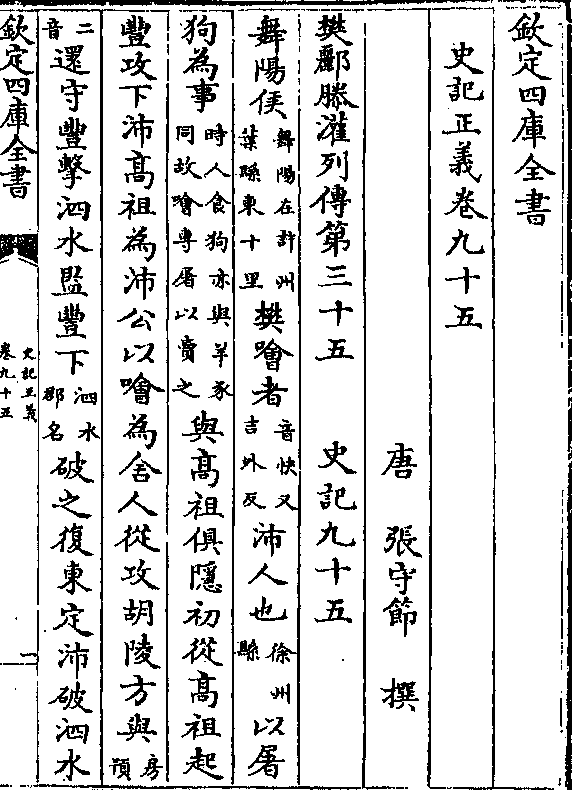 欽定四庫全書
史記正義卷九十五
唐 張守節 撰
樊酈滕灌列傳第三十五 史記九十五
舞陽侯舞陽在許州葉縣東十里樊噲者音快又吉外反沛人也徐州縣以屠
狗為事時人食狗亦與羊豕同故噲専屠以賣之與髙祖俱隱初從髙祖起
豐攻下沛髙祖為沛公以噲為舍人從攻胡陵方與房預
二音還守豐擊泗水監豐下泗水郡名破之復東定沛破泗水
欽定四庫全書
史記正義
卷九十五
一